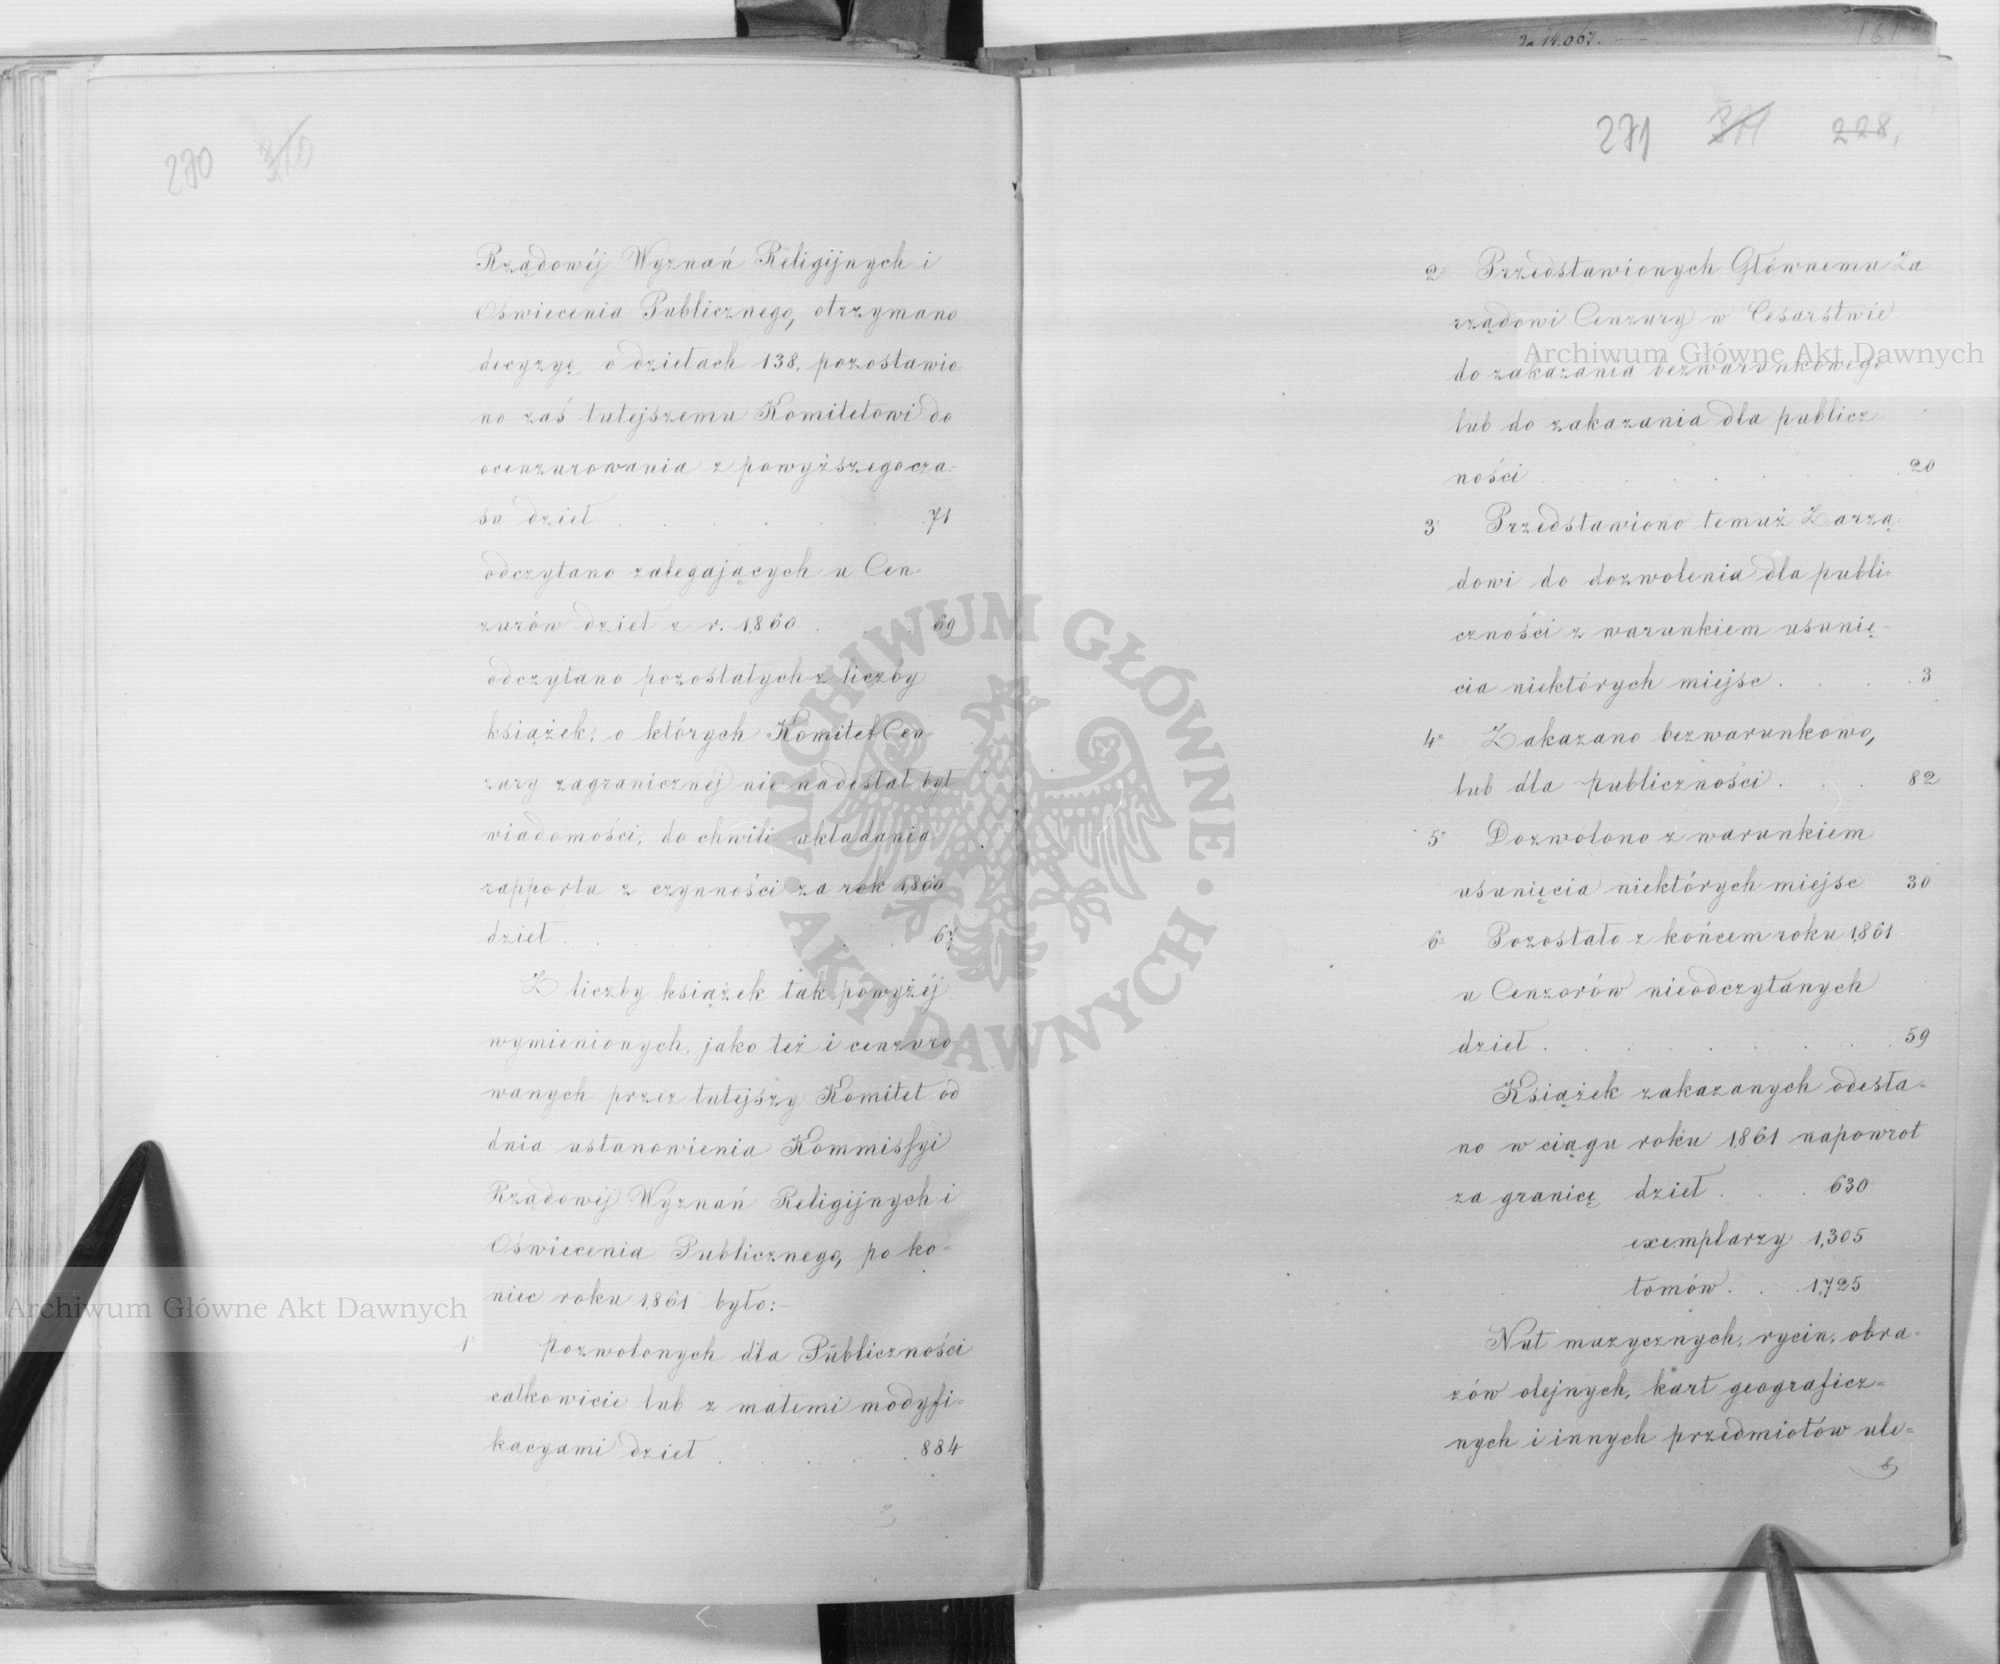 270 310
Rządowéj Wyznań Religijnych i
Oświecenia Publicznego, otrzymano
decyzyę o dziełach 138, pozostawio-
no zaś tutejszemu Komitetowi do
ocenzurowania z powyższego cza-
su dzieł . . . . . 71
odczytano zalegających u Cen-
zorów dzieł z r. 1860 . . . 69
odczytano pozostałych z liczby
książek, o których Komitet Cen-
zury zagranicznéj nie nadesłał był
wiadomości, do chwili układania
rapportu z czynności za rok 1860
dzieł . . . . . 67
Z liczby książek tak powyżéj
wymienionych, jako też i cenzuro-
wanych przez tutejszy Komitet od
dnia ustanowienia Kommissyi
Rządowéj Wyznań Religijnych i
Oświecenia Publicznego, po ko-
niec roku 1861 było:-
1° pozwolonych dla Publiczności
całkowicie lub z małemi modyfi-
kacyami dzieł . . . . . 884
za 14.007. 161
271 311 228.
2° Przedstawionych Głównemu Za-
rządowi Cenzury w Cesarstwie
do zakazania bezwarunkowego
lub do zakazania dla publicz-
ności . . . . . 20
3° Przedstawiono temuż Zarzą-
dowi do dozwolenia dla publi-
czności z warunkiem usunię-
cia niektórych miejsc . . . . 3
4° Zakazano bezwarunkowo,
lub dla publiczności . . . 82
5° Dozwolono z warunkiem
usunięcia niektórych miejsc 30
6° Pozostało z końcem roku 1861
u Cenzorów nieodczytanych
dzieł . . . . . 59
Książek zakazanych odesła-
no w ciągu roku 1861 napowrot
za granicę dzieł . . . 630
exemplarzy 1,305
tomów . . . 1,725
Nut muzycznych, rycin, obra-
zów olejnych, kart geograficz-
nych i innych przedmiotów ule-
Archiwum Główne Akt Dawnych
Archiwum Główne Akt Dawnych
ARCHIWUM GŁÓWNE · AKT DAWNYCH ·